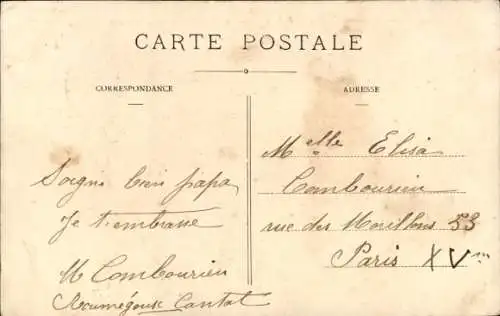 CARTE POSTALE
CORRESPONDANCE
ADRESSE
Soigne bien papa
Je t'embrasse
M Combourieu
Roumégoux Cantal
Melle Elisa
Combourieu
rue des Morillons 53
Paris XV